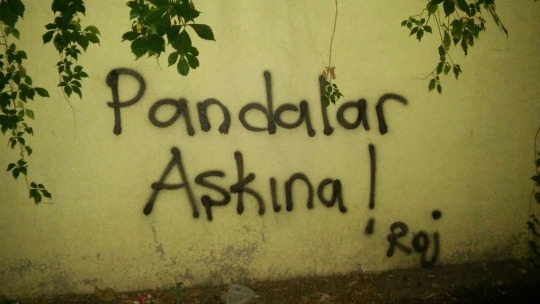 Pandalar
Aşkına!
'Roj